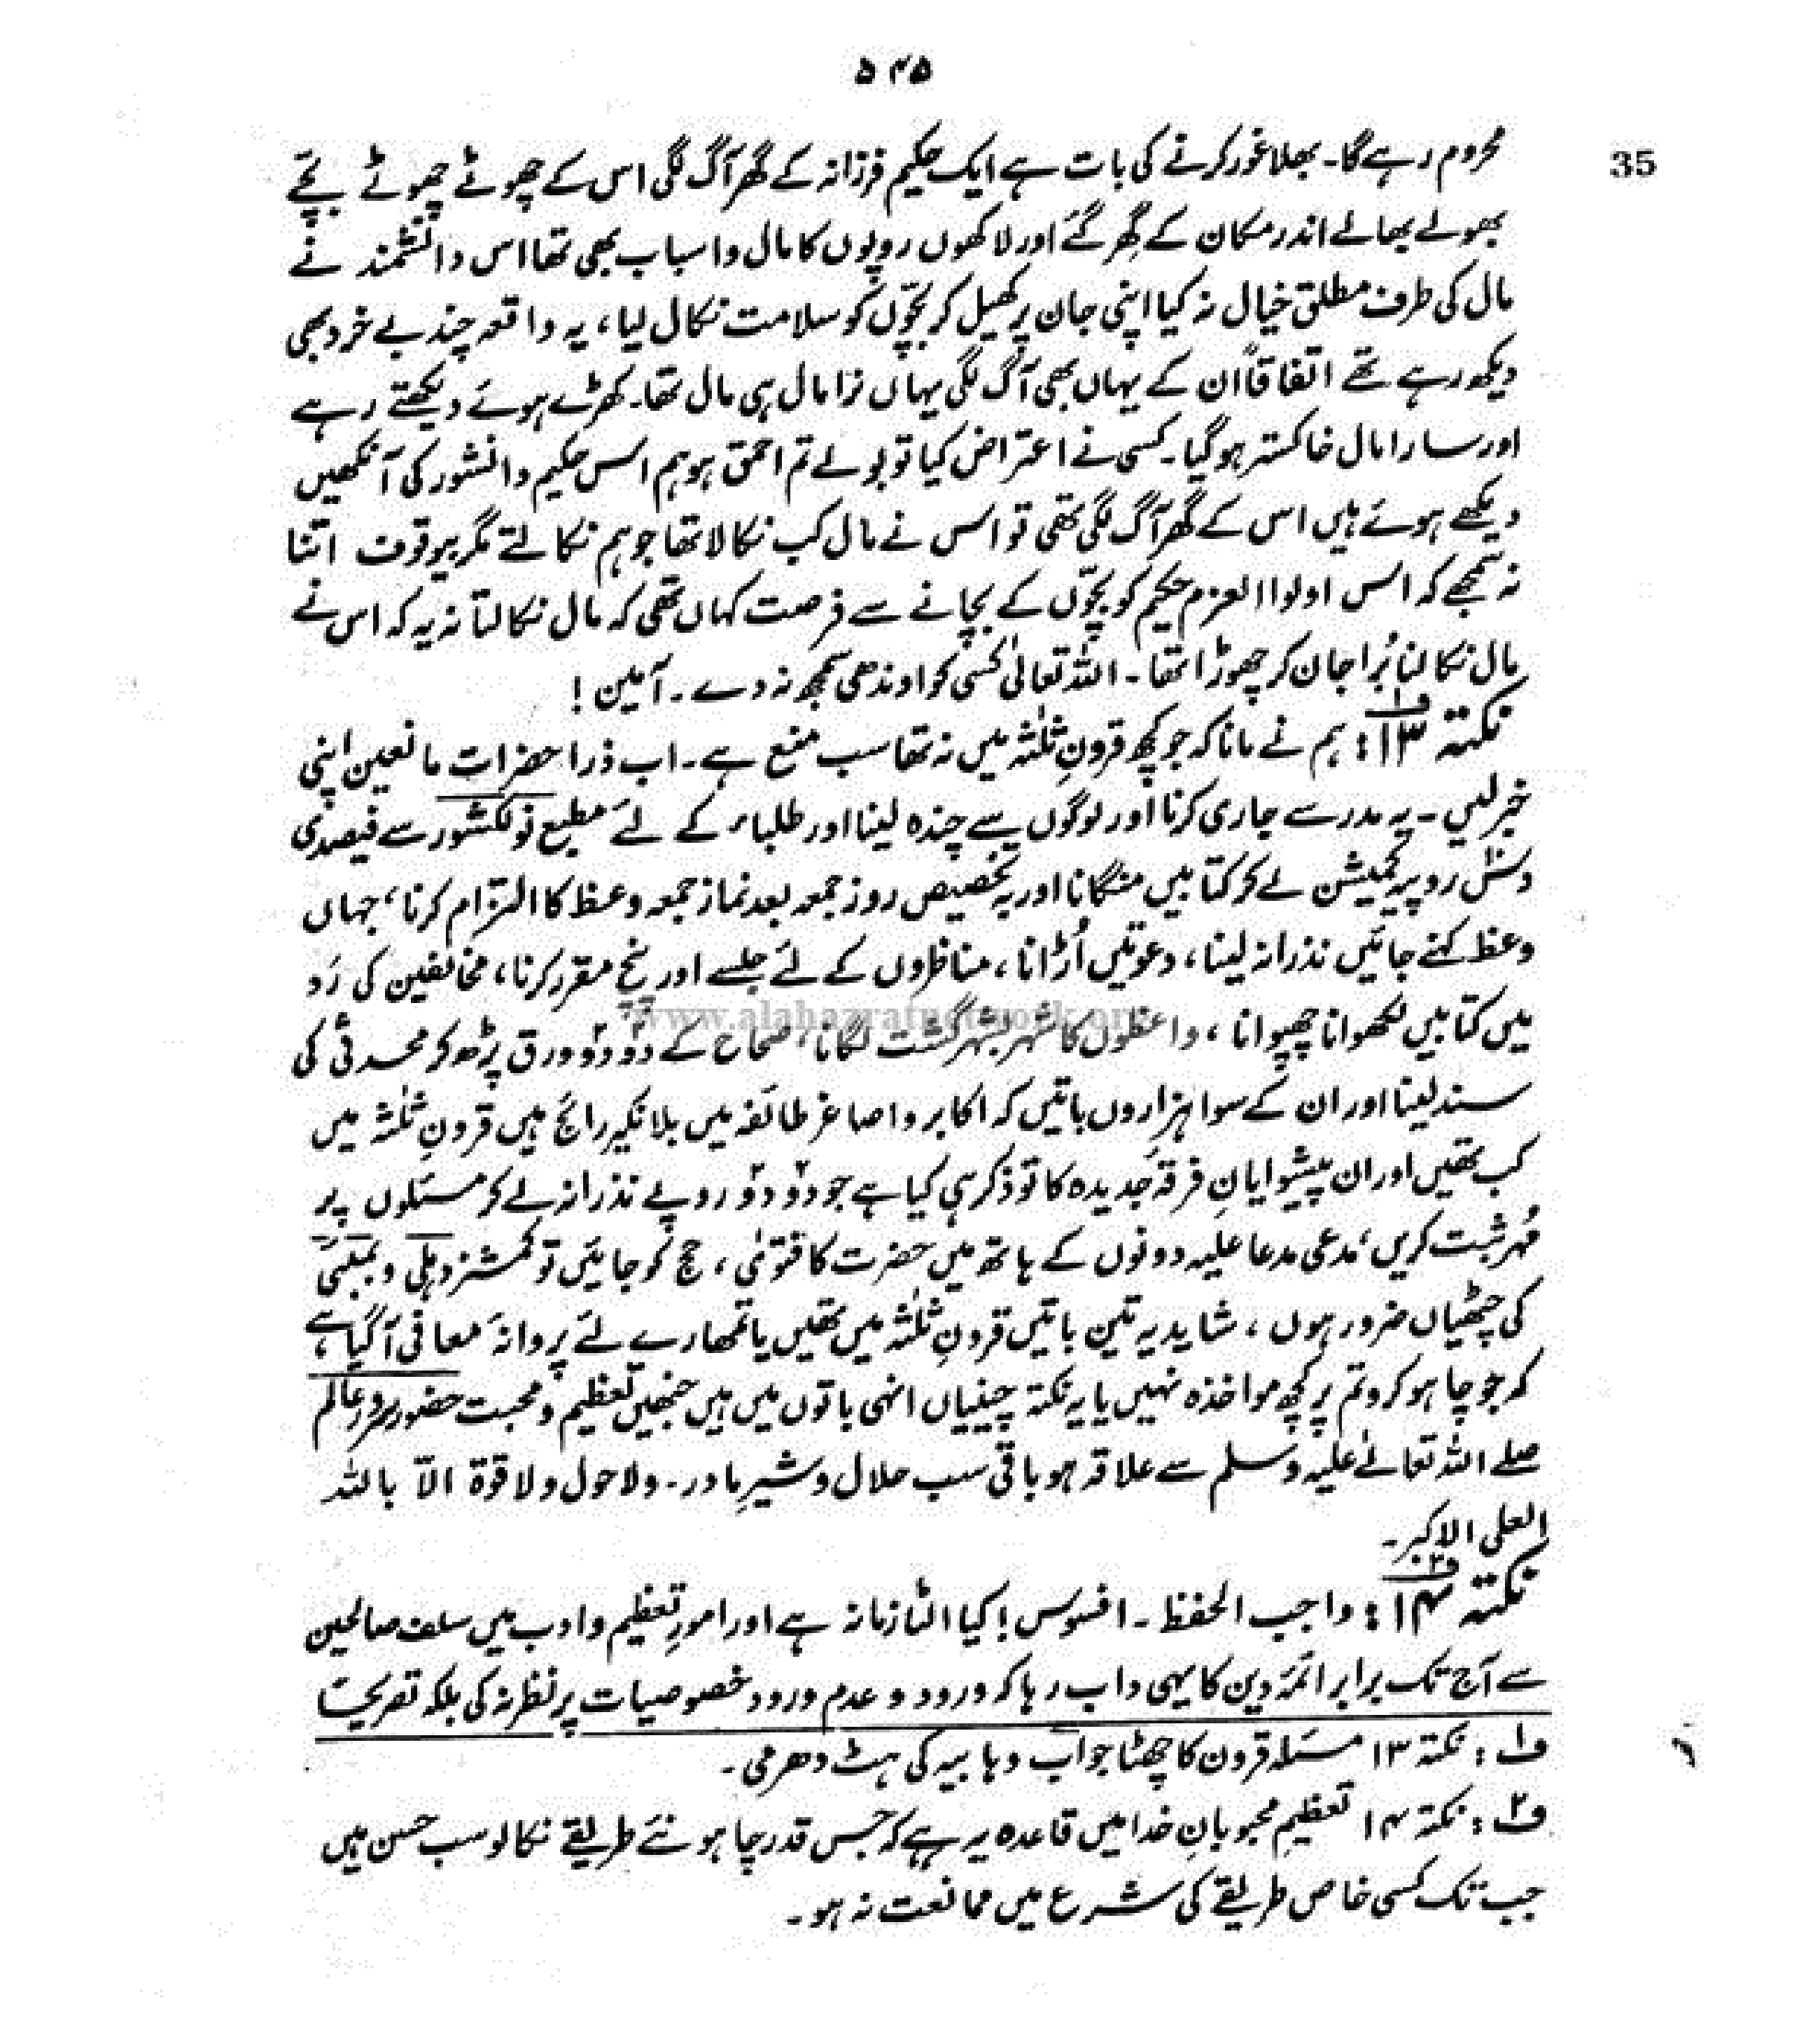 ۵۴۵
35
محروم رہے گا۔ بھلا غور کرنے کی بات ہے ایک حکیم فرزانہ کے گھر آگ لگی اس کے چھوٹے چھوٹے بچّے
بھولے بھالے اندر مکان کے گِھر گئے اور لاکھوں روپوں کا مال و اسباب بھی تھا اس دانشمند نے
مال کی طرف مطلق خیال نہ کیا اپنی جان پر کھیل کر بچّوں کو سلامت نکال لیا، یہ واقعہ چند بے خرد بھی
دیکھ رہے تھے اتفاقاً ان کے یہاں بھی آگ لگی یہاں نرا مال ہی مال تھا۔ کھڑے ہوئے دیکھتے رہے
اور سارا مال خاکستر ہوگیا۔ کسی نے اعتراض کیا تو بولے تم احمق ہو ہم اس حکیم دانشور کی آنکھیں
دیکھے ہوئے ہیں اس کے گھر آگ لگی تھی تو اس نے مال کب نکالا تھا جو ہم نکالتے مگر بیوقوف اتنا
نہ سمجھے کہ اس اولوا العزم حکیم کو بچّوں کے بچانے سے فرصت کہاں تھی کہ مال نکالتا نہ یہ کہ اس نے
مال نکالنا بُرا جان کر چھوڑا تھا۔ اللہ تعالیٰ کسی کو اوندھی سمجھ نہ دے۔ آمین !
نکتہ ۱۳ ف۱ : ہم نے مانا کہ جو کچھ قرونِ ثلٰثہ میں نہ تھا سب منع ہے۔ اب ذرا حضرات مانعین اپنی
خبر لیں۔ یہ مدرسے جاری کرنا اور لوگوں سے چندہ لینا اور طلباء کے لئے مطبع نولکشور سے فیصدی
دس روپیہ کمیشن لے کر کتابیں منگانا اور بہ تخصیص روز جمعہ بعد نماز جمعہ وعظ کا التزام کرنا، جہاں
وعظ کہنے جائیں نذرانہ لینا، دعوتیں اُڑانا، مناظروں کے لئے جلسے اور پنچ مقرر کرنا، مخالفین کی رَد
www.alahazratnetwork.org
میں کتابیں لکھوانا چھپوانا، واعظوں کا شہر بشہر گشت لگانا، صحاح کے دو دو ورق پڑھ کر محدثی کی
سند لینا اور ان کے سوا ہزاروں باتیں کہ اکابر و اصاغر طائفہ میں بلانکیر رائج ہیں قرونِ ثلٰثہ میں
کب تھیں اور ان پیشوایانِ فرقہ جدیدہ کا تو ذکر ہی کیا ہے جو دو دو روپے نذرانہ لے کر مسئلوں پر
مُہر ثبت کریں، مدعی مدعا علیہ دونوں کے ہاتھ میں حضرت کا فتوٰی، حج کو جائیں تو کمشنر دہلی و بمبئی
کی چٹھیاں ضرور ہوں، شاید یہ تین باتیں قرونِ ثلٰثہ میں تھیں یا تمھارے لئے پروانۂ معافی آگیا ہے
کہ جو چاہو کرو تم پر کچھ مواخذہ نہیں یا یہ نکتہ چینیاں انہی باتوں میں ہیں جنھیں تعظیم و محبت حضور سرورِ عالم
صلے اللہ تعالٰے علیہ وسلم سے علاقہ ہو باقی سب حلال و شیرِ مادر۔ ولا حول ولا قوۃ الّا باللہ
العلی الاکبر۔
نکتہ ۱۴ ف۲ : واجب الحفظ۔ افسوس! کیا الٹا زمانہ ہے اور امورِ تعظیم و ادب میں سلف صالحین
سے آج تک برابر ائمۂ دین کا یہی داب رہا کہ ورود و عدم ورود خصوصیات پر نظر نہ کی بلکہ تصریحاً
ف۱ : نکتہ ۱۳ مسئلہ قرون کا چھٹا جواب وہابیہ کی ہٹ دھرمی۔
ف۲ : نکتہ ۱۴ تعظیمِ محبوبانِ خدا میں قاعدہ یہ ہے کہ جس قدر چاہو نئے طریقے نکالو سب حسن ہیں
جب تک کسی خاص طریقے کی شرع میں ممانعت نہ ہو۔